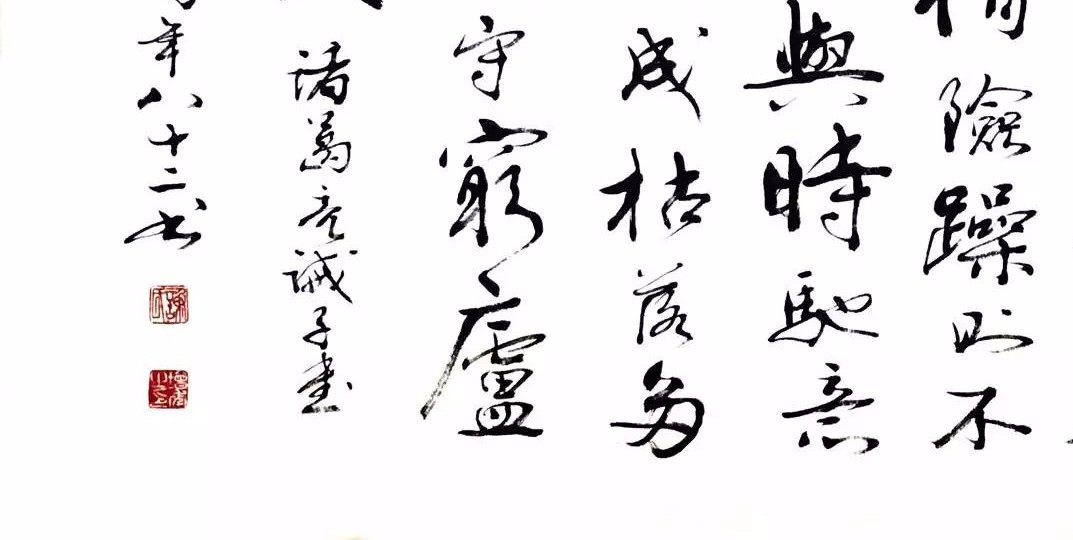 險躁則不
與時馳意
成枯落多
守窮廬
諸葛亮誡子書
年八十二書